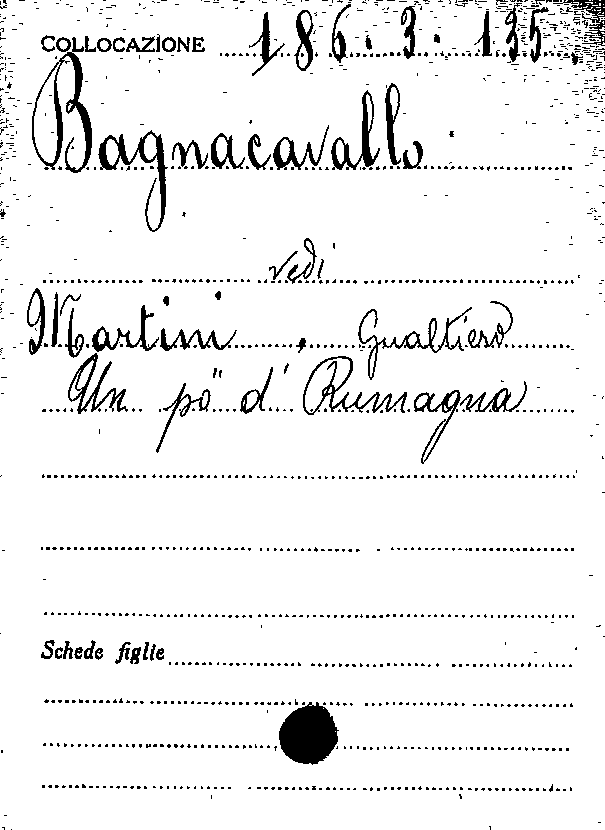 COLLOCAZIONE 186.3.135.
Bagnacavallo
vedi
Martini, Gualtiero
Un pö d' Rumagna
Schede figlie